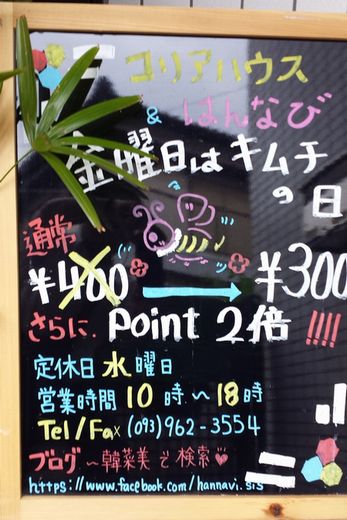 コリアハウス
& はんなび
金曜日はキムチ
の日
通常
¥400 → ¥300
さらに. Point 2倍 !!!!
定休日 水曜日
営業時間 10時〜18時
Tel/Fax (093)962-3554
ブログ 〜韓菜美で検索♥
https://www.facebook.com/hannavi.sis